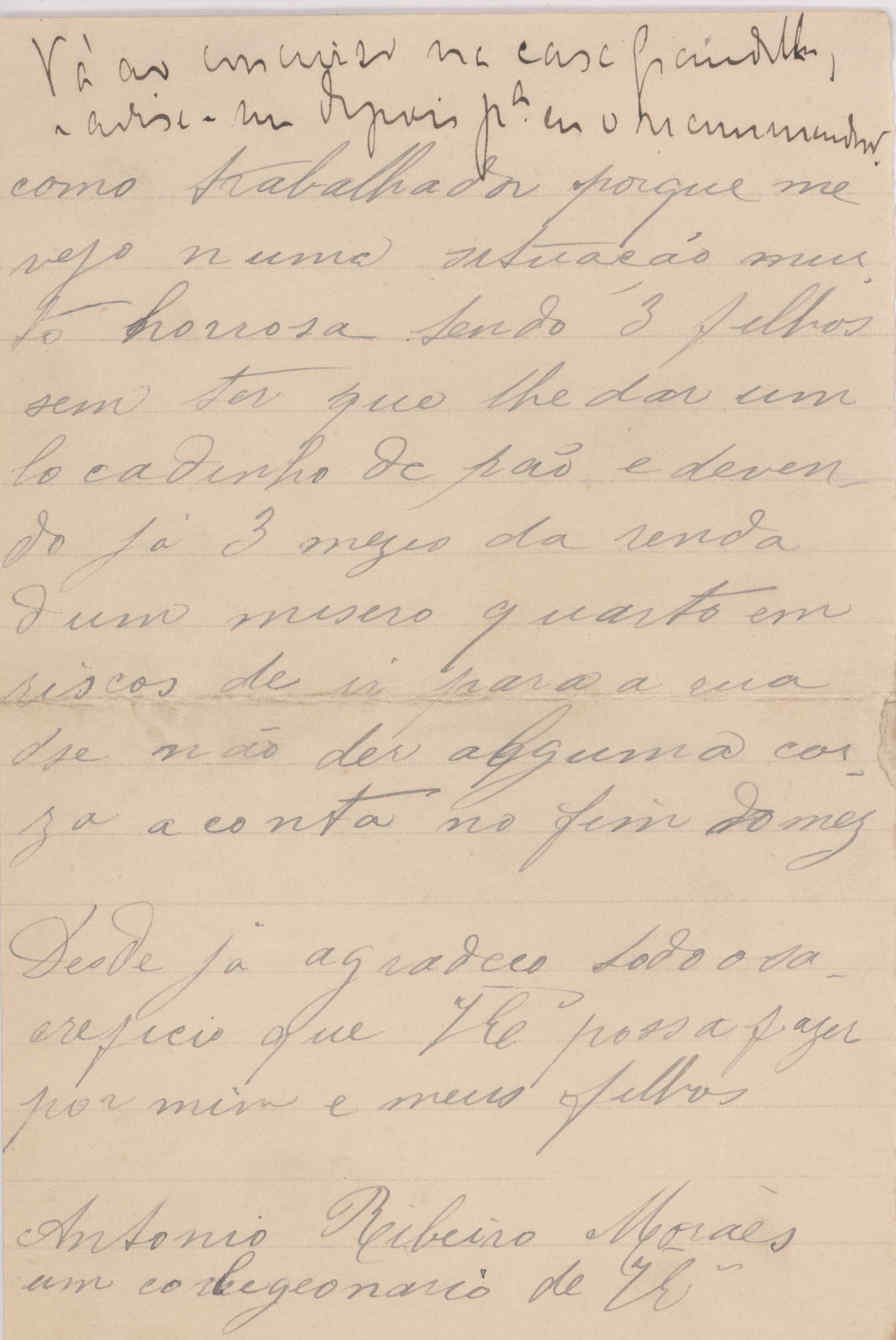 Vá ao concurso na casa Grandella,
e avise-me depois p.ª eu o recommendar.
como trabalhador porque me
vejo numa situacáo mui-
to horrosa tendo 3 filhos
sem ter que lhe dar um
bocadinho de paõ e deven-
do já 3 mezes da renda
dum misero quarto em
riscos de ir para a rua
se não der alguma coi-
za aconta no fim do mez
Desde já agradeco todo o sa-
creficio que VEª possa fazer
por mim e meus filhos
Antonio Ribeiro Moraes
um corlegeonario de VEª